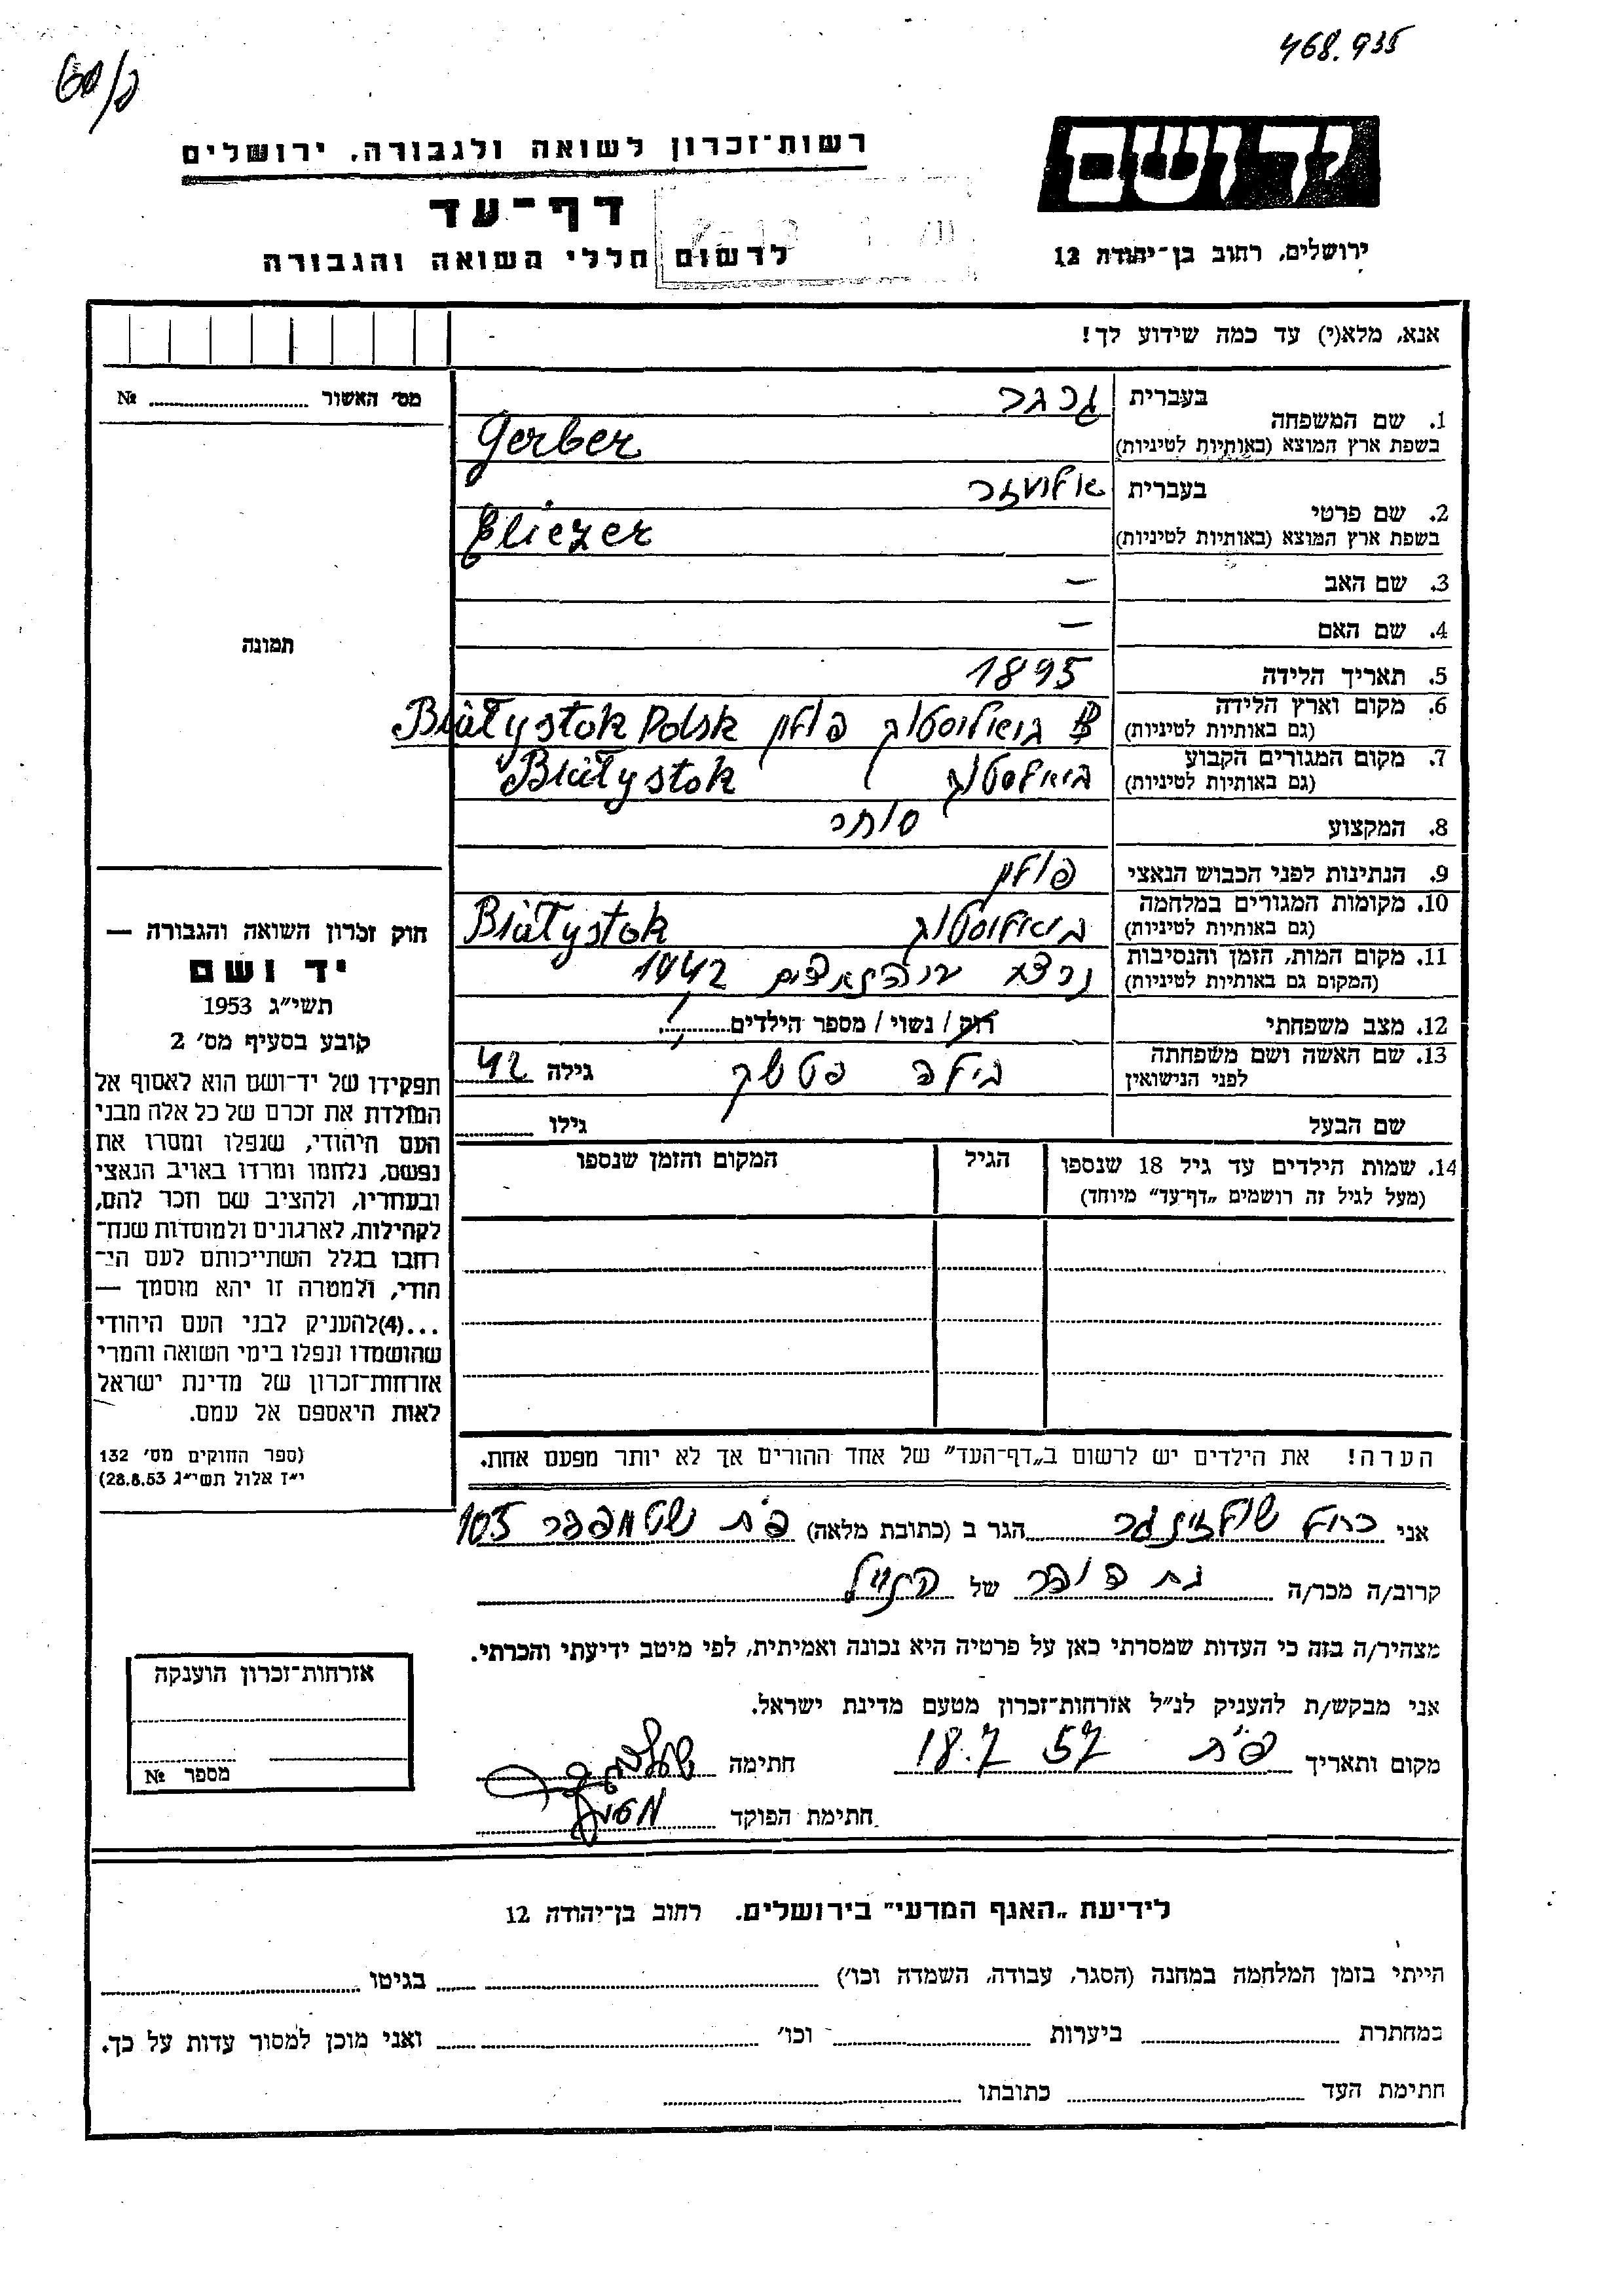 468.935
60/ג
יד ושם
רשות־זכרון לשואה ולגבורה, ירושלים
דף־עד
לרשום חללי השואה והגבורה
ירושלים, רחוב בן־יהודה 12
אנא, מלא(י) עד כמה שידוע לך!
מס׳ האשור № ........
1. שם המשפחה
בעברית גרבר
בשפת ארץ המוצא (באותיות לטיניות) Gerber
2. שם פרטי
בעברית אליעזר
בשפת ארץ המוצא (באותיות לטיניות) Eliezer
3. שם האב —
4. שם האם —
תמונה
5. תאריך הלידה 1895
6. מקום וארץ הלידה ביאליסטוק פולין Białystok Polsk
(גם באותיות לטיניות)
7. מקום המגורים הקבוע ביאלסטוק Białystok
(גם באותיות לטיניות)
8. המקצוע סוחר
9. הנתינות לפני הכבוש הנאצי פולין
10. מקומות המגורים במלחמה ביאליסטוק Białystok
(גם באותיות לטיניות)
11. מקום המות, הזמן והנסיבות נרצח 1942
(המקום גם באותיות לטיניות)
12. מצב משפחתי רוק / נשוי / מספר הילדים........
13. שם האשה ושם משפחתה לפני הנישואין בילה גילה 42
שם הבעל גילו ........
14. שמות הילדים עד גיל 18 שנספו
(מעל לגיל זה רושמים „דף־עד" מיוחד)
הגיל
המקום והזמן שנספו
חוק זכרון השואה והגבורה —
יד ושם
תשי״ג 1953
קובע בסעיף מס׳ 2
תפקידו של יד־ושם הוא לאסוף אל
המולדת את זכרם של כל אלה מבני
העם היהודי, שנפלו ומסרו את
נפשם, נלחמו ומרדו באויב הנאצי
ובעוזריו, ולהציב שם וזכר להם,
לקהילות, לארגונים ולמוסדות שנח־
רבו בגלל השתייכותם לעם הי־
הודי, ולמטרה זו יהא מוסמך —
...(4)להעניק לבני העם היהודי
שהושמדו ונפלו בימי השואה והמרי
אזרחות־זכרון של מדינת ישראל
לאות היאספם אל עמם.
(ספר החוקים מס׳ 132
י״ז אלול תשי״ג 28.8.53)
הערה! את הילדים יש לרשום ב„דף־העד" של אחד ההורים אך לא יותר מפעם אחת.
אני שולזינגר הגר ב (כתובת מלאה) פ״ת שטמפפר 105
קרוב/ה מכר/ה בת דודה של הנ״ל
מצהיר/ה בזה כי העדות שמסרתי כאן על פרטיה היא נכונה ואמיתית, לפי מיטב ידיעתי והכרתי.
אני מבקש/ת להעניק לנ״ל אזרחות־זכרון מטעם מדינת ישראל.
מקום ותאריך פ״ת 18.7 57 חתימה
חתימת הפוקד
אזרחות־זכרון הוענקה
מספר №
לידיעת „האגף המדעי" בירושלים. רחוב בן־יהודה 12
הייתי בזמן המלחמה במחנה (הסגר, עבודה, השמדה וכו׳) ........ בגיטו ........
במחתרת ........ ביערות ........ וכו׳ ........ ואני מוכן למסור עדות על כך.
חתימת העד ........ כתובתו ........